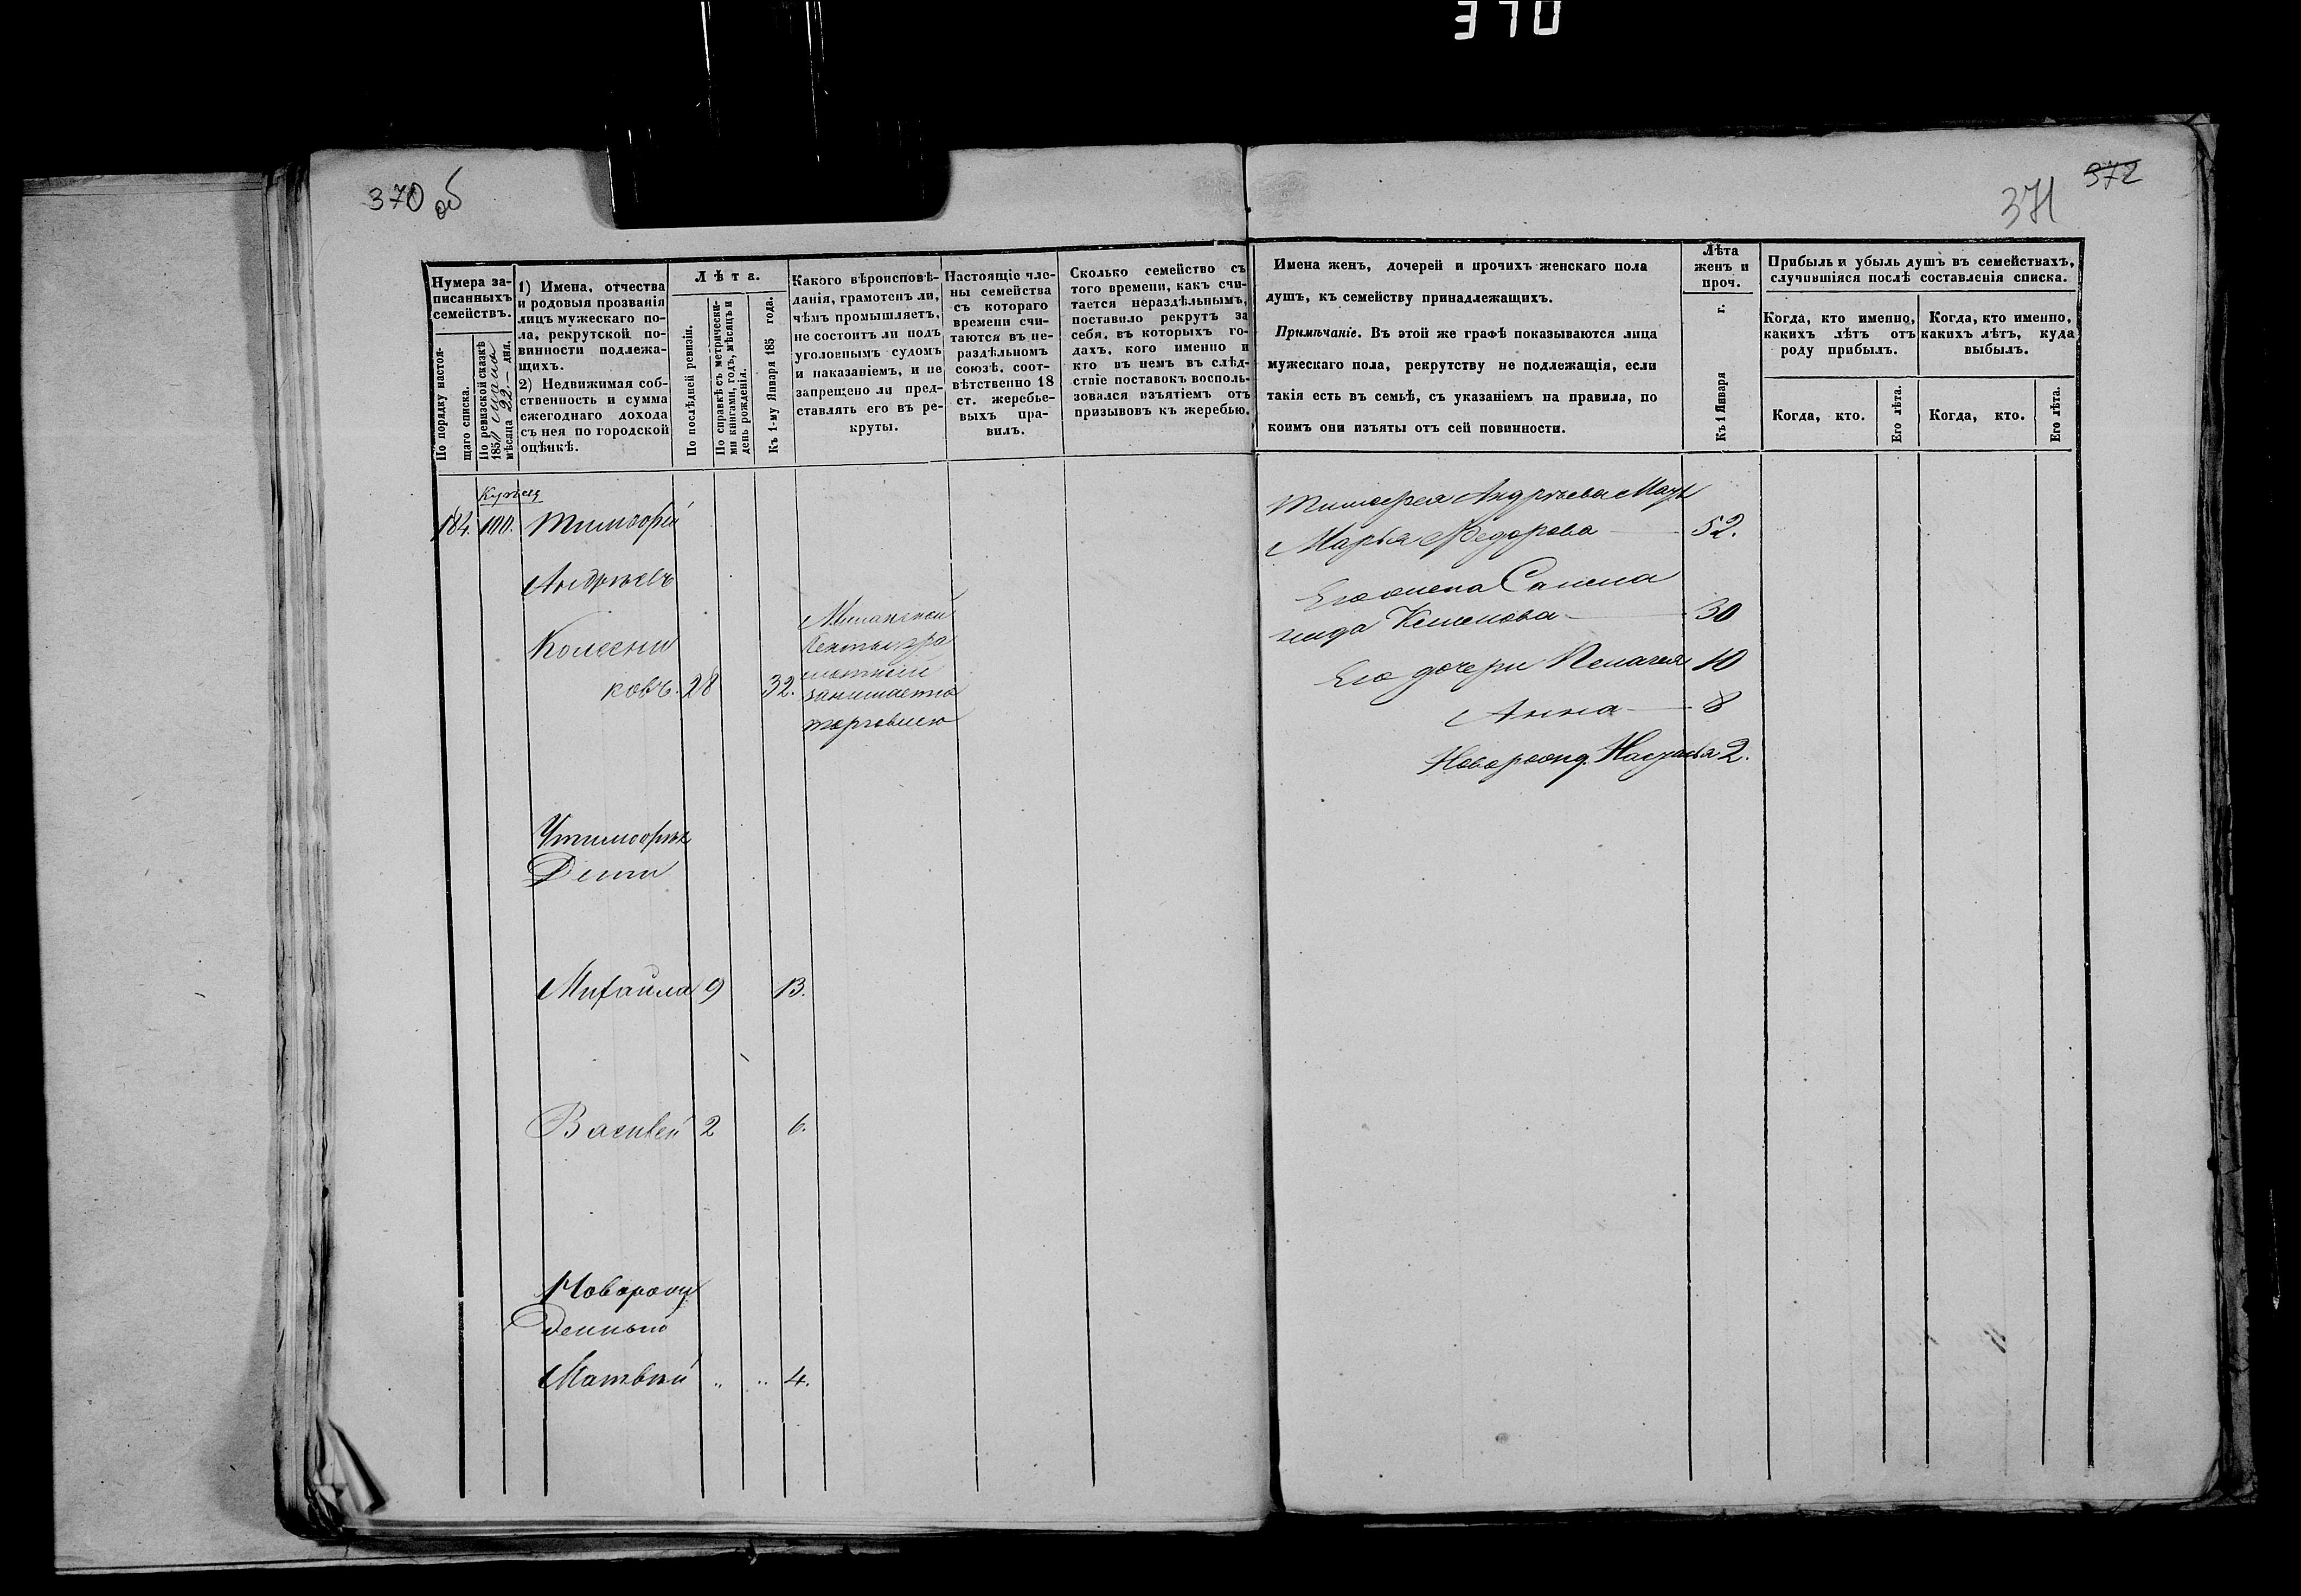 370
370 об
371
372
Нумера за-
писанныхъ
семействъ.
По порядку настоя-
щаго списка.
По ревизской сказкѣ
185
мѣсяца 22 дня.
1) Имена, отчества
и родовыя прозванія
лицъ мужескаго по-
ла, рекрутской по-
винности подлежа-
щихъ.
2) Недвижимая соб-
ственность и сумма
ежегоднаго дохода
съ нея по городской
оцѣнкѣ.
Лѣта.
По послѣдней ревизіи.
По справкѣ съ метрически-
ми книгами, годъ, мѣсяцъ и
день рожденія.
Къ 1-му Января 185 года.
Какого вѣроисповѣ-
данія, грамотенъ ли,
чѣмъ промышляетъ,
не состоитъ ли подъ
уголовнымъ судомъ
и наказаніемъ, и не
запрещено ли пред-
ставлять его въ ре-
круты.
Настоящіе чле-
ны семейства
съ котораго
времени счи-
таются въ не-
раздѣльномъ
союзѣ, соот-
вѣтственно 18
ст. жеребье-
выхъ пра-
вилъ.
Сколько семейство съ
того времени, какъ счи-
тается нераздѣльнымъ,
поставило рекрутъ за
себя, въ которыхъ го-
дахъ, кого именно и
кто въ немъ въ слѣд-
ствіе поставокъ восполь-
зовался изъятіемъ отъ
призывовъ къ жеребью.
Имена женъ, дочерей и прочихъ женскаго пола
душъ, къ семейству принадлежащихъ.
Примѣчаніе. Въ этой же графѣ показываются лица
мужескаго пола, рекрутству не подлежащія, если
такія есть въ семьѣ, съ указаніемъ на правила, по
коимъ они изъяты отъ сей повинности.
Лѣта
женъ и
проч.
Къ 1 Января г.
Прибыль и убыль душъ въ семействахъ,
случившіяся послѣ составленія списка.
Когда, кто именно,
какихъ лѣтъ отъ
роду прибылъ.
Когда, кто именно,
какихъ лѣтъ, куда
выбылъ.
Когда, кто.
Его лѣта.
Когда, кто.
Его лѣта.
184. 100. Тимофей
Андрѣевъ
Колесни
ковъ. 28 32.
занимается
торговлею
Утимофѣя
Дети
Михайла 9 13.
Василей 2 6.
Новорож
денный
Матвѣй .. .. 4.
Тимофея Андрѣева Мать
Марья Федорова 52.
Его жена
30
Его дочери Пелагея 10
Анна 8
Новорожд. 2.